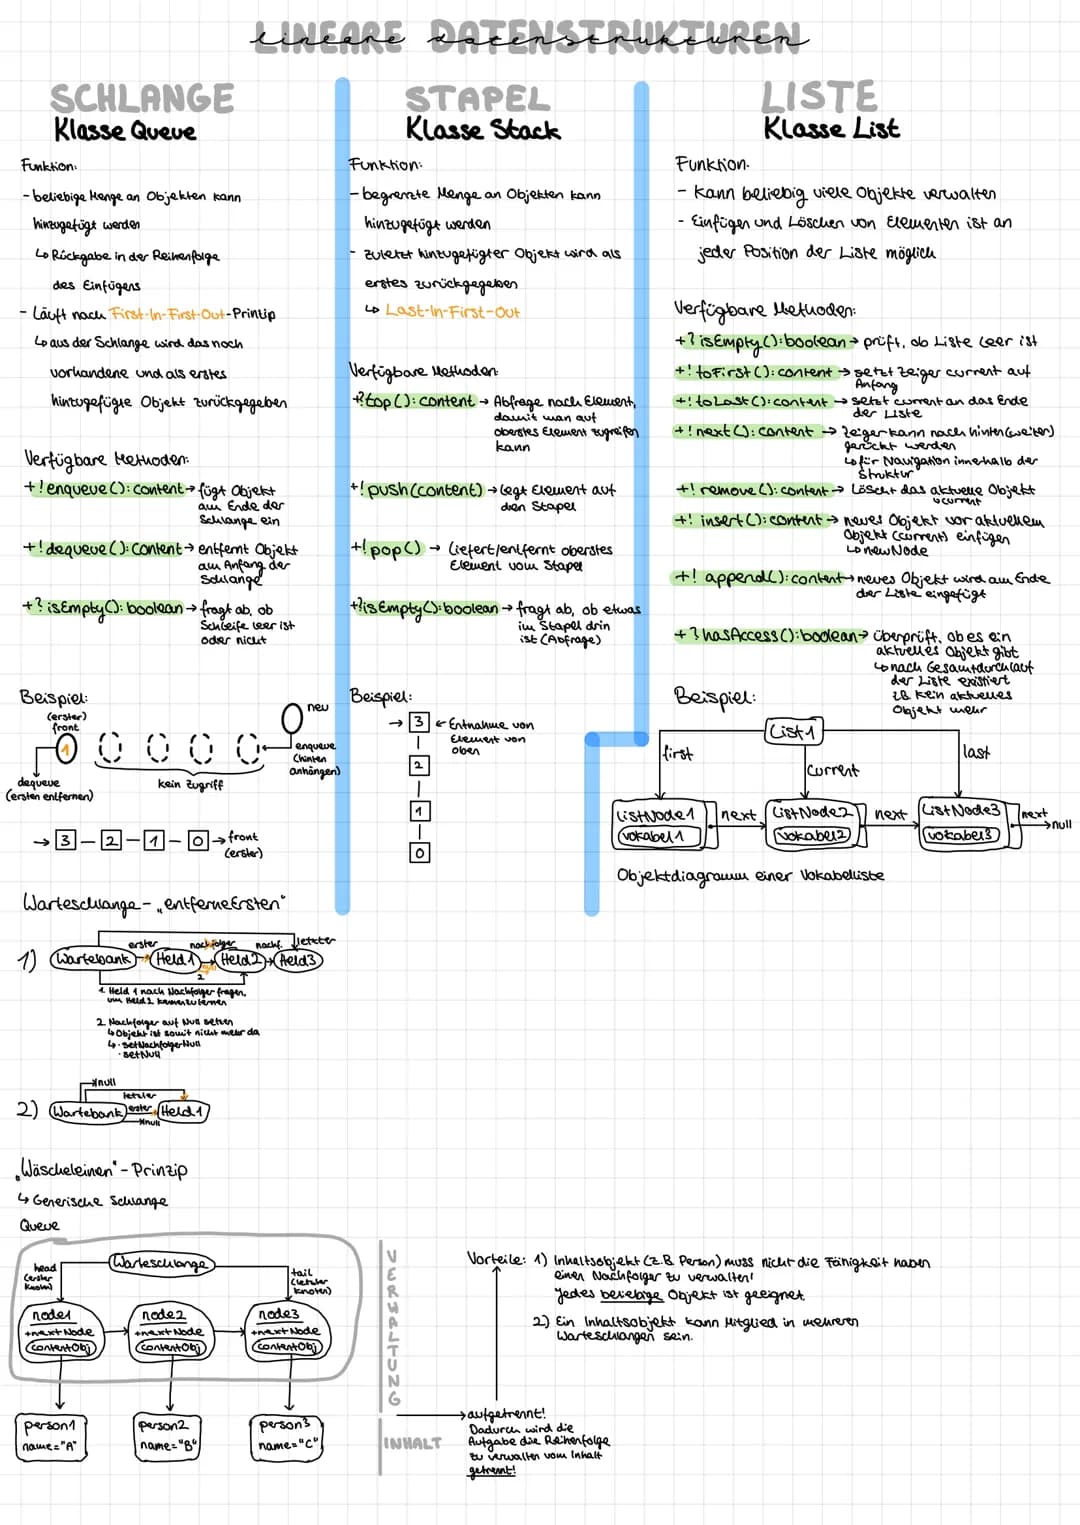 LINEARE DATENSTRUKTUREN
SCHLANGE
Klasse Queue
Funktion:
- beliebige Menge an Objekten kann
hinzugefügt werden
↳ Rückgabe in der Reihenfolge
des Einfügens
- Läuft nach First-In-First-Out-Printip
↳ aus der Schlange wird das noch
vorhandene und als erstes
hinzugefügte Objekt zurückgegeben
Verfügbare Methoden:
+! enqueue(): content → fügt Objekt
am Ende der
Schlange ein
+! dequeue(): content → entfernt Objekt
am Anfang der
Schlange
+? isEmpty(): boolean → fragt ab, ob
Schleife leer ist
oder nicht
Beispiel:
(erster)
front
1
neu
enqueue
(hinten
anhängen)
dequeue
(ersten entfernen)
kein Zugriff
→ 3 - 2 - 1 - 0 → front
(erster)
STAPEL
Klasse Stack
Funktion:
- begrenzte Menge an Objekten kann
hinzugefügt werden
- zuletzt hinzugefügter Objekt wird als
erstes zurückgegeben
↳ Last-In-First-Out
Verfügbare Methoden:
+? top(): content → Abfrage nach Element,
damit man auf
oberstes Element zugreifen
kann
+! push(content) → legt Element auf
den Stapel
+! pop() → liefert/entfernt oberstes
Element vom Stapel
+? isEmpty(): boolean → fragt ab, ob etwas
im Stapel drin
ist (Abfrage)
Beispiel:
→ 3 ← Entnahme von
Element von
oben
2
1
0
LISTE
Klasse List
Funktion:
- kann beliebig viele Objekte verwalten
- Einfügen und Löschen von Elementen ist an
jeder Position der Liste möglich
Verfügbare Methoden:
+? isEmpty(): boolean → prüft, ob Liste leer ist
+! toFirst(): content → setzt Zeiger current auf
Anfang
+! toLast(): content → setzt current an das Ende
der Liste
+! next(): content → Zeiger kann nach hinten (weiter)
gerückt werden
↳ für Navigation innerhalb der
Struktur
+! remove(): content → Löscht das aktuelle Objekt
↳ current
+! insert(): content → neues Objekt vor aktuellem
Objekt (current) einfügen
↳ newNode
+! append(): content → neues Objekt wird am Ende
der Liste eingefügt
+? hasAccess(): boolean → überprüft, ob es ein
aktuelles Objekt gibt
↳ nach Gesamtdurchlauf
der Liste existiert
z.B. kein aktuelles
Objekt mehr
Beispiel:
List1
first
current
last
ListNode1
Vokabel1
next
ListNode2
Vokabel2
next
ListNode3
Vokabel3
next
null
Objektdiagramm einer Vokabelliste
Warteschlange - „entferneErsten"
1) Wartebank
erster
Held1
nachfolger
Held2
nachf.
Held3
letzter
null
2
1. Held 1 nach Nachfolger fragen,
um Held 2 kennenzulernen
2. Nachfolger auf Null setzen
↳ Objekt ist somit nicht mehr da
↳ · setNachfolgerNull
· setNull
2) Wartebank
null
letzter
erster
Held1
null
„Wäscheleinen" - Prinzip
↳ Generische Schlange
Queue
Warteschlange
head
(erster
Knoten)
tail
(letzter
Knoten)
node1
+next Node
contentObj
node2
+next Node
contentObj
node3
+next Node
contentObj
person1
name="A"
person2
name="B"
person3
name="C"
VERWALTUNG
INHALT
Vorteile: 1) Inhaltsobjekt (z.B. Person) muss nicht die Fähigkeit haben
einen Nachfolger zu verwalten!
Jedes beliebige Objekt ist geeignet.
2) Ein Inhaltsobjekt kann Mitglied in mehreren
Warteschlangen sein.
→ aufgetrennt!
Dadurch wird die
Aufgabe die Reihenfolge
zu verwalten vom Inhalt
getrennt!